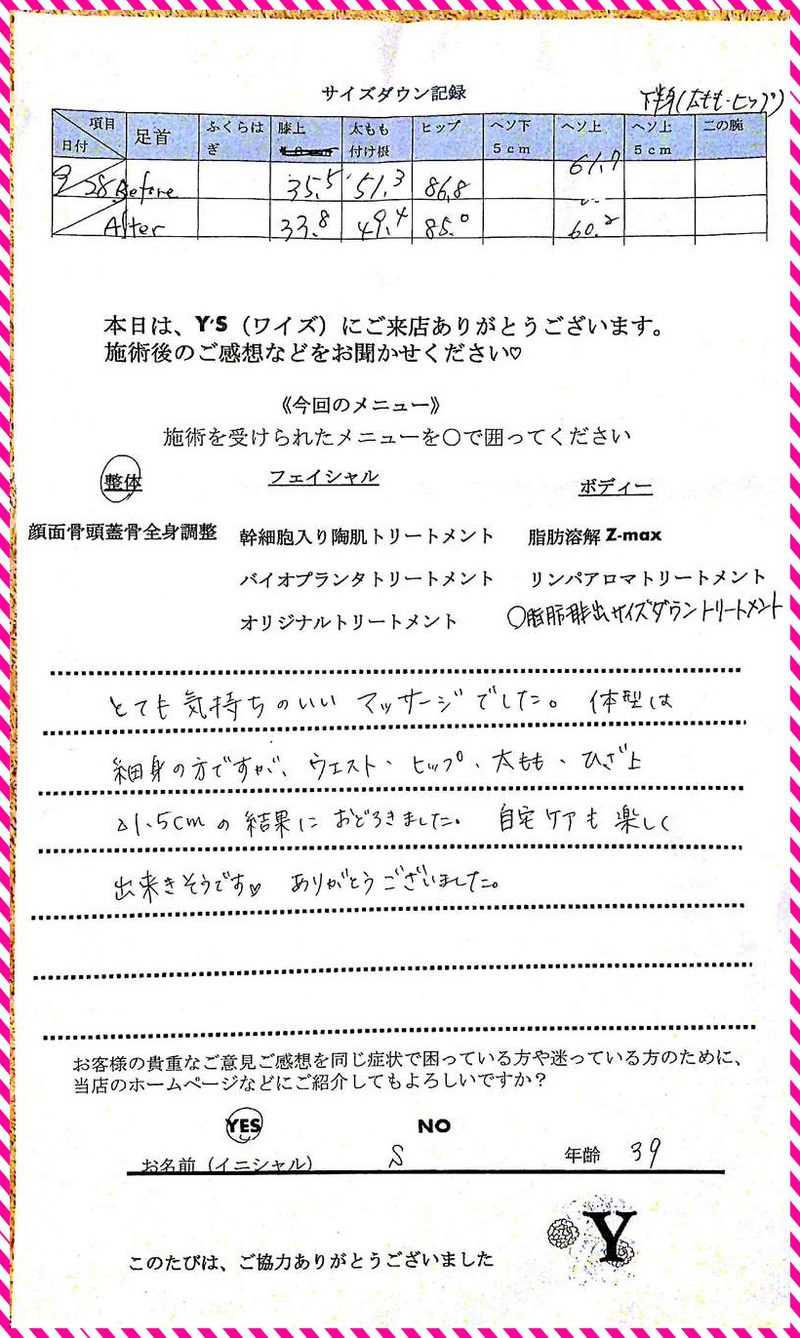 サイズダウン記録
下半身(太もも・ヒップ)
項目
日付
足首
ふくらはぎ
膝上
太もも付け根
ヒップ
ヘソ下5cm
ヘソ上
ヘソ上5cm
二の腕
9/28 Before 35.5 51.3 86.8 61.7
After 33.8 49.4 85.0 60.2
本日は、Y'S（ワイズ）にご来店ありがとうございます。
施術後のご感想などをお聞かせください♡
《今回のメニュー》
施術を受けられたメニューを〇で囲ってください
整体 フェイシャル ボディー
顔面骨頭蓋骨全身調整 幹細胞入り陶肌トリートメント 脂肪溶解 Z-max
バイオプランタトリートメント リンパアロマトリートメント
オリジナルトリートメント 〇脂肪排出サイズダウントリートメント
とても気持ちのいいマッサージでした。 体型は
細身の方ですが、ウエスト・ヒップ、太もも・ひざ上
△1.5cmの結果におどろきました。 自宅ケアも楽しく
出来きそうです♡ ありがとうございました。
お客様の貴重なご意見ご感想を同じ症状で困っている方や迷っている方のために、
当店のホームページなどにご紹介してもよろしいですか？
YES NO
お名前（イニシャル） S 年齢 39
Y
このたびは、ご協力ありがとうございました